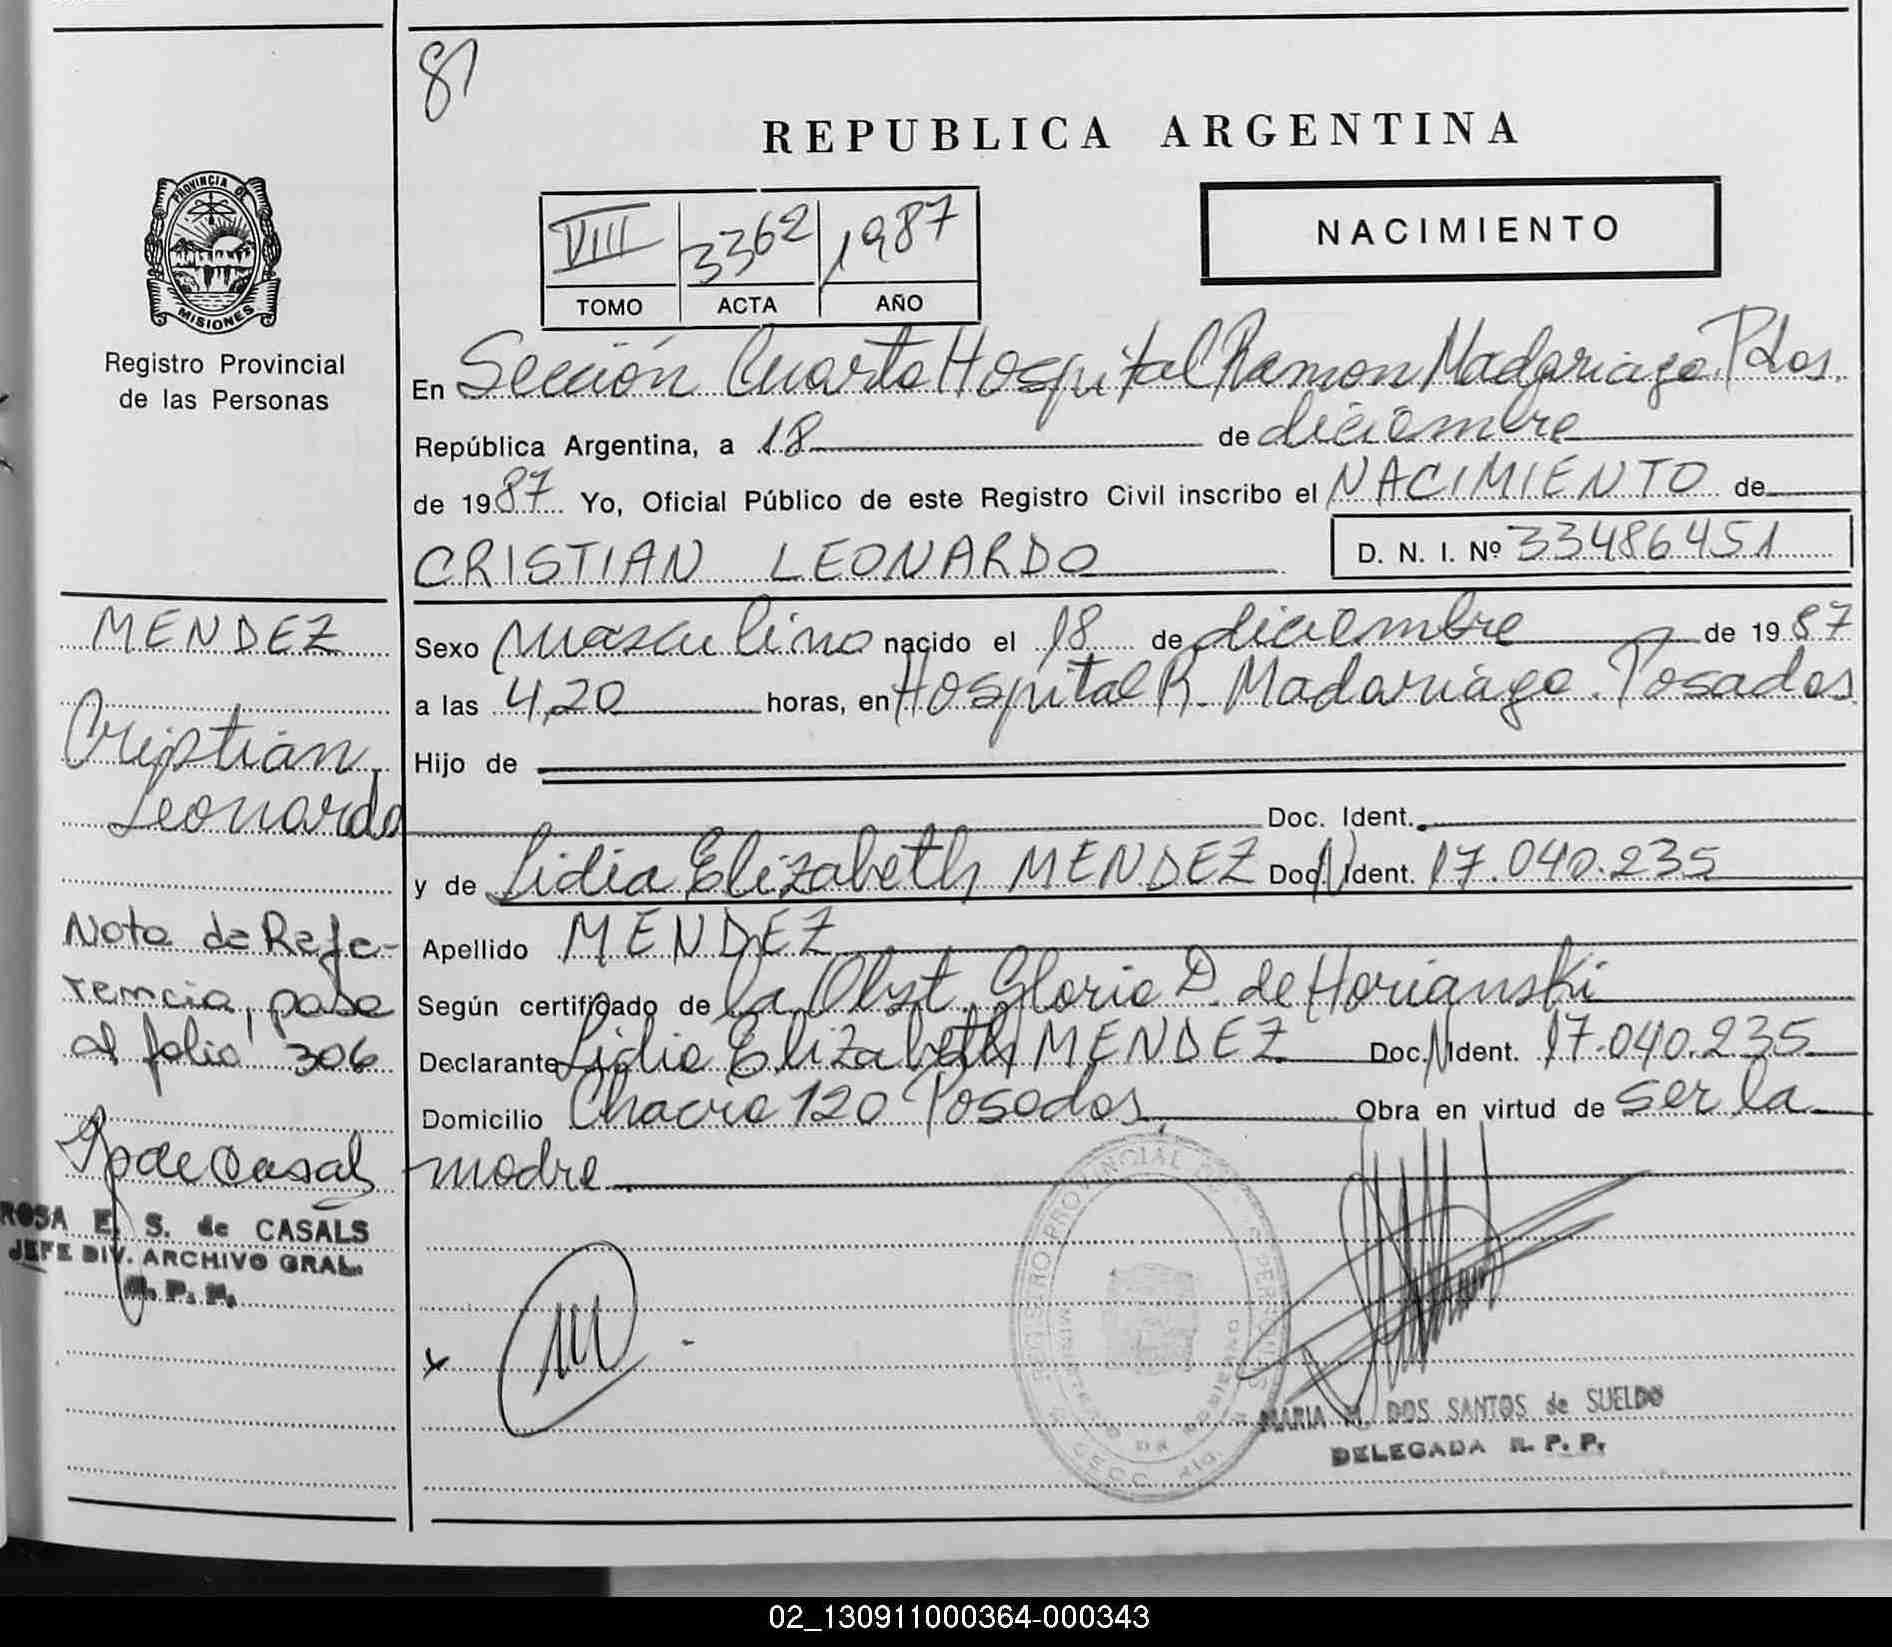 81
REPUBLICA ARGENTINA
PROVINCIA DE
MISIONES
VIII 3362 1987
TOMO ACTA AÑO
NACIMIENTO
Registro Provincial
de las Personas
En Sección Cuarta Hospital Ramon Madariaga. Pdas.
República Argentina, a 18 de diciembre
de 1987 Yo, Oficial Público de este Registro Civil inscribo el NACIMIENTO de
CRISTIAN LEONARDO D. N. I. Nº 33486451
Sexo masculino nacido el 18 de diciembre de 1987
a las 4,20 horas, en Hospital R. Madariaga. Posadas
Hijo de
Doc. Ident.
y de Lidia Elizabeth MENDEZ Doc. Ident. 17.040.235
Apellido MENDEZ
Según certificado de la Obst. Gloria D. de Horianski
Declarante Lidia Elizabeth MENDEZ Doc. Ident. 17.040.235
Domicilio Chacra 120 Posadas Obra en virtud de ser la
madre
MENDEZ
Cristian
Leonardo
Nota de Refe-
rencia, pasa
al folio 306
de Casals
ROSA E. S. de CASALS
JEFE DIV. ARCHIVO GRAL.
R. P. P.
REGISTRO PROVINCIAL DE
MARIA M. DOS SANTOS de SUELDO
DELEGADA R. P. P.
02_130911000364-000343